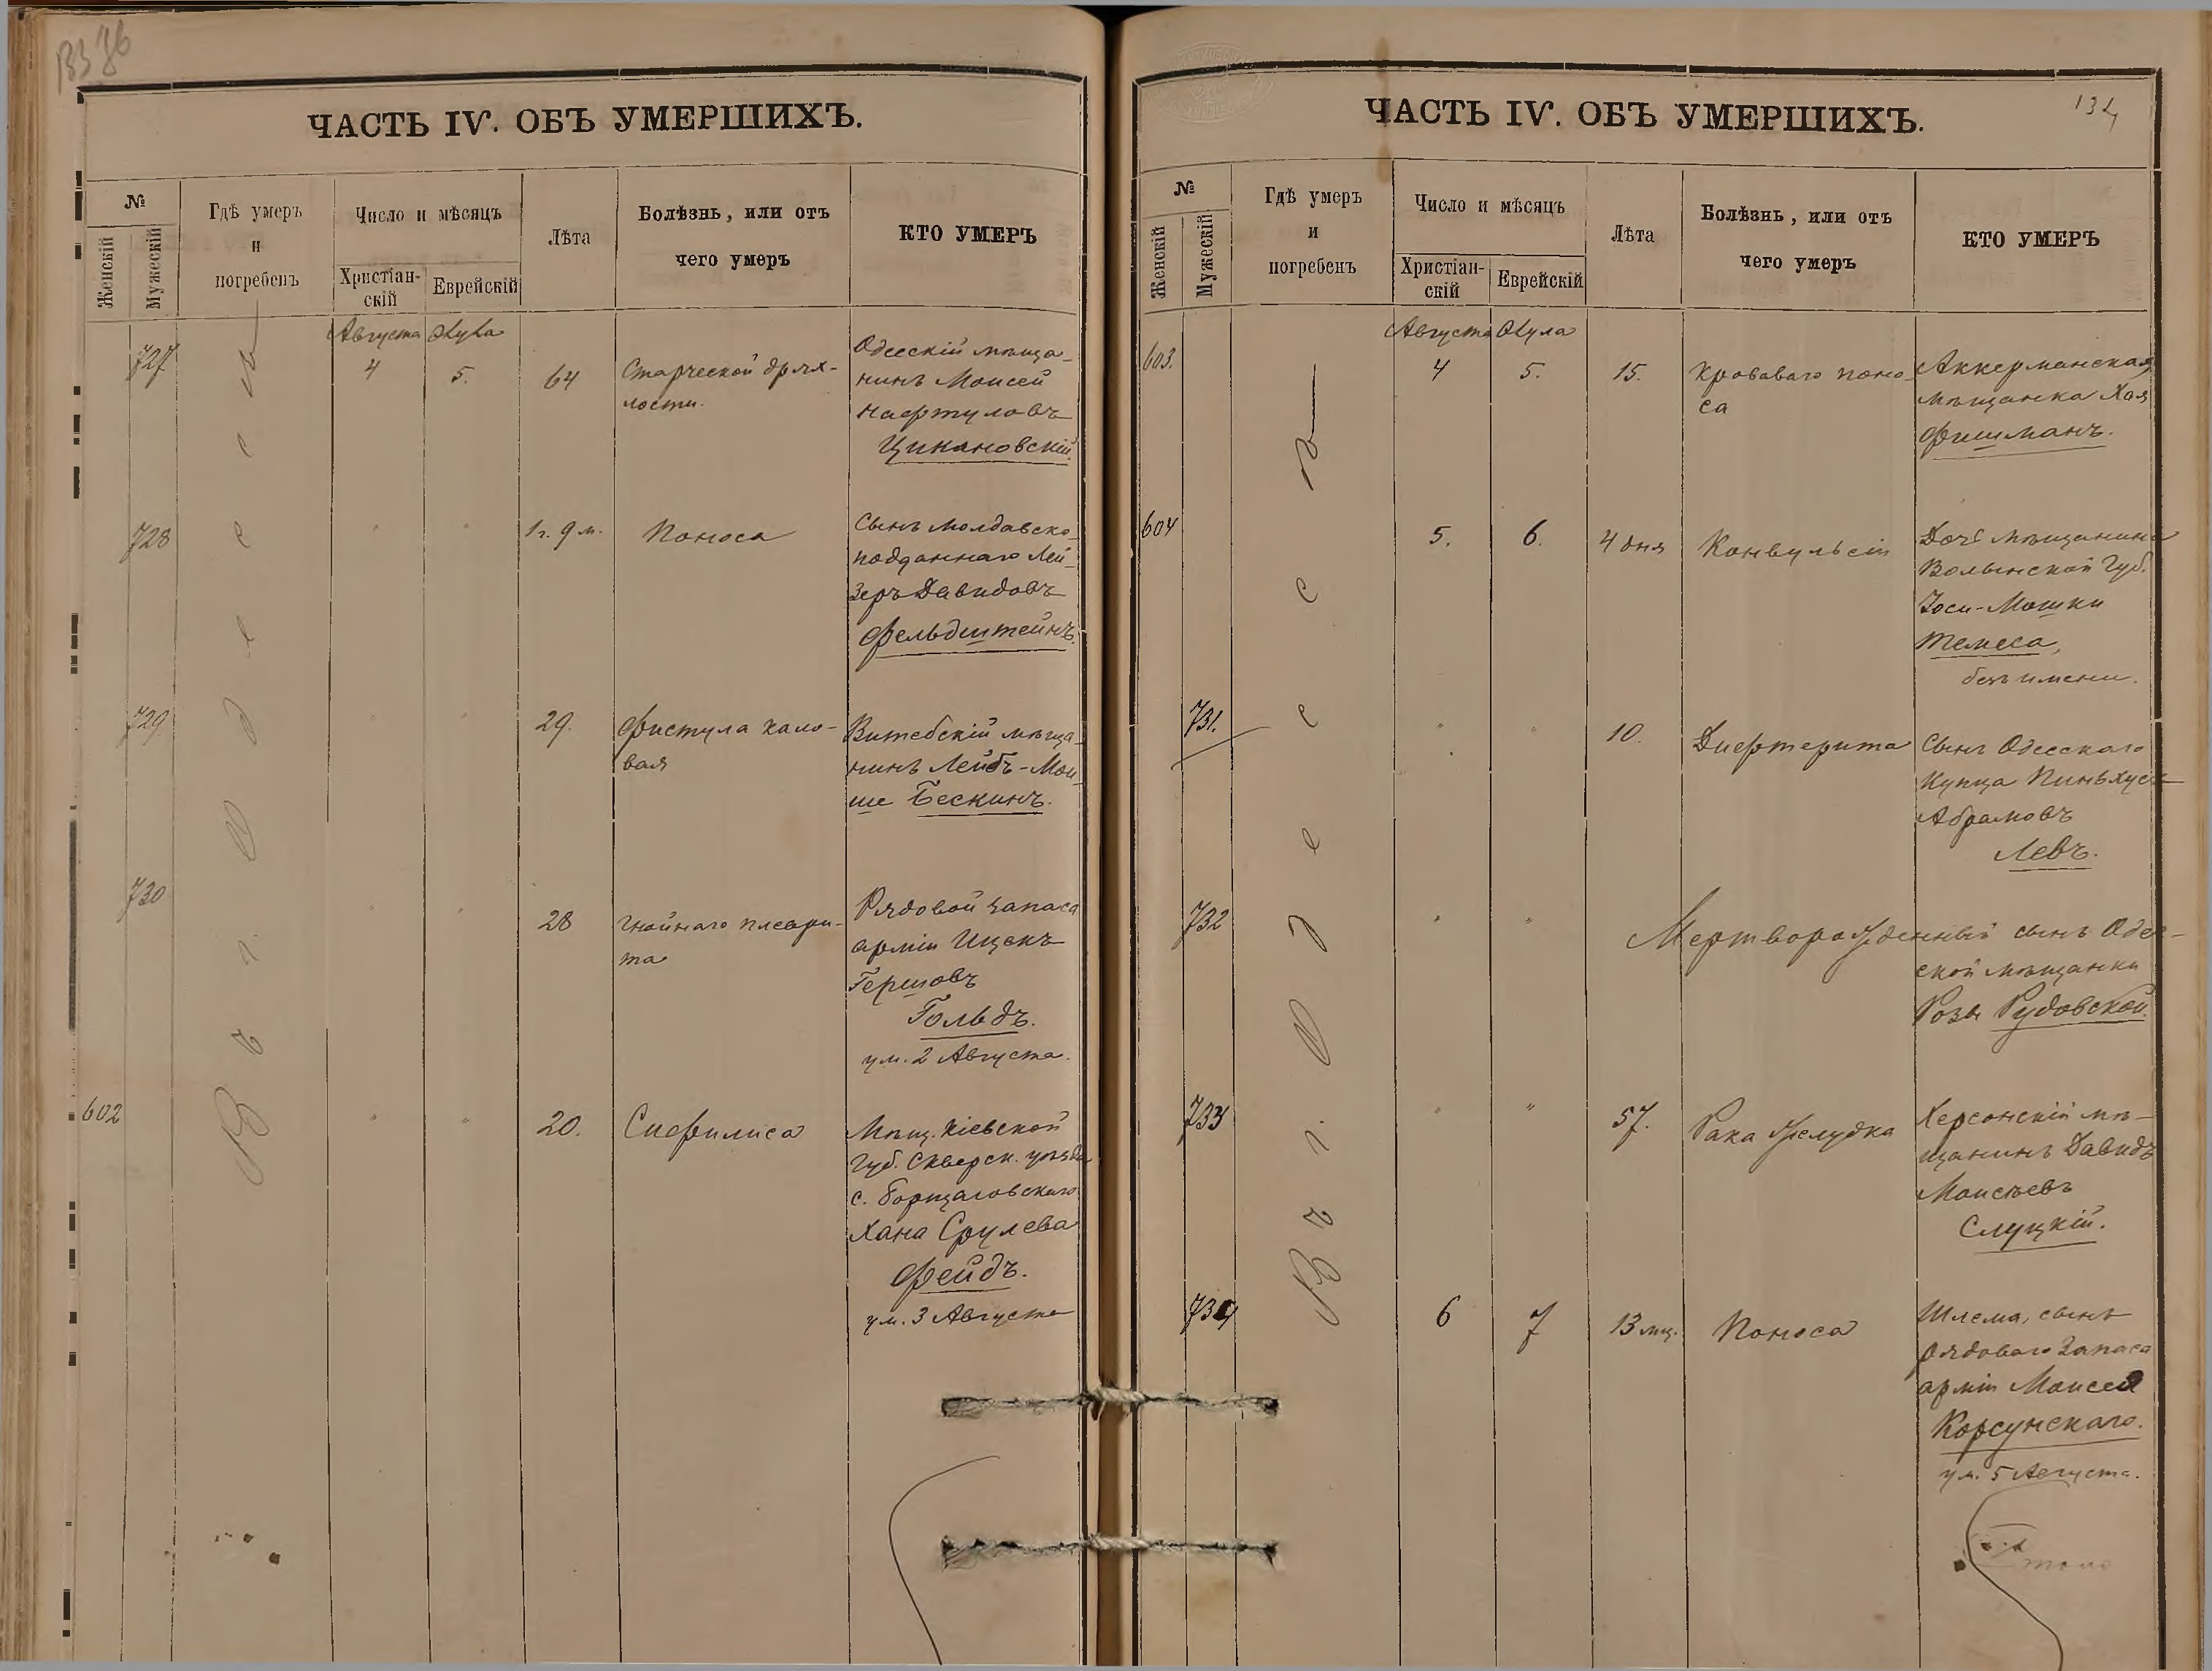 ЧАСТЬ IV. ОБЪ УМЕРШИХЪ.
№
Женскій
Мужескій
Гдѣ умеръ
и
погребенъ
Число и мѣсяцъ
Христіан-
скій
Еврейскій
Лѣта
Болѣзнь, или отъ
чего умеръ
КТО УМЕРЪ
Въ г. Одессѣ
Августа
727
4
5.
64
Старческой дрях-
лости.
Одесскій мѣща-
нинъ Моисей
Нафтуловъ
Цикановскій.
728
" "
1 г. 9 м.
Поноса
Сынъ молдавско-
подданнаго Лей-
зеръ Давидовъ
Фельдштейнъ.
729
" "
29.
Фистула кало-
вая
Витебскій мѣща-
нинъ Лейбъ-Мои-
ше Бескинъ.
730
" "
28
Гнойнаго плеври-
та
Рядовой запаса
арміи Ицекъ
Гершовъ
Гольдъ.
ум. 2 Августа.
602
" "
20.
Сифилиса
Мѣщ. Кіевской
Губ. Сквирск. уѣзда
с. Борщаговскаго
Хана Срулева
Фейдъ.
ум. 3 Августа
ЧАСТЬ IV. ОБЪ УМЕРШИХЪ.
134
№
Женскій
Мужескій
Гдѣ умеръ
и
погребенъ
Число и мѣсяцъ
Христіан-
скій
Еврейскій
Лѣта
Болѣзнь, или отъ
чего умеръ
КТО УМЕРЪ
Въ г. Одессѣ
Августа
603.
4
5.
15.
Кроваваго поно-
са
Аккерманская
мѣщанка Хая
Фишманъ.
604
5.
6.
4 дня
Конвульсіи
Дочь мѣщанина
Волынской Губ.
Іоси-Мошки
Темеса,
безъ имени.
731.
" "
10.
Дифтерита
Сынъ Одесскаго
Купца Пиньхусъ
Абрамовъ
Левъ.
732
" "
Мертворожденный сынъ Одес-
ской мѣщанки
Розы Рудовской.
733
" "
57.
Рака желудка
Херсонскій мѣ-
щанинъ Давидъ
Моисѣевъ
Слуцкій.
734
6
7
13 мц.
Поноса
Шлема, сынъ
рядоваго запаса
арміи Моисея
Корсунскаго.
ум. 5 Августа.